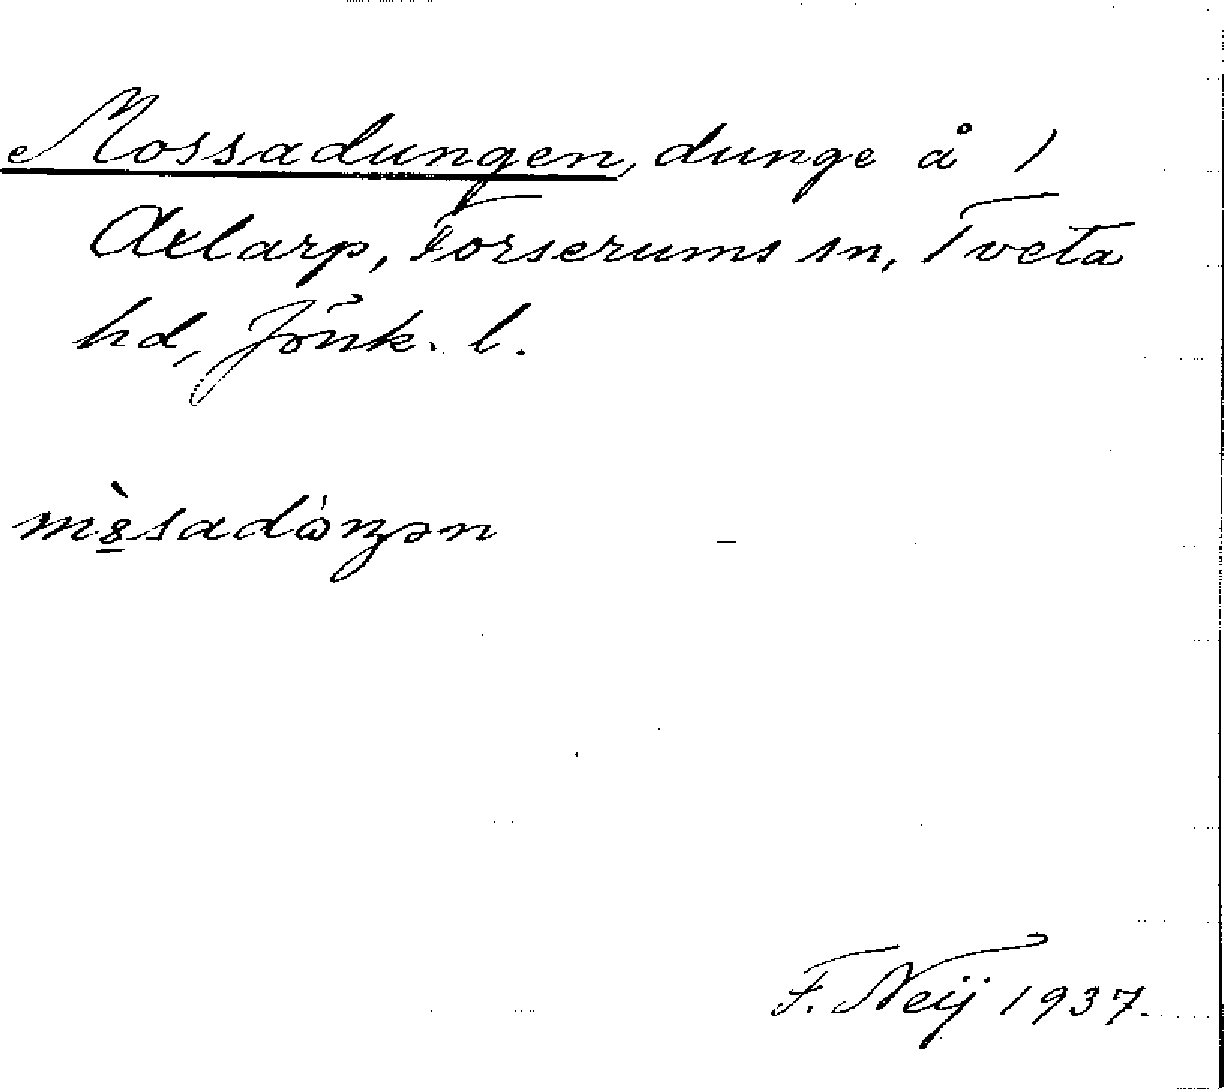 Mossadungen, dunge å 1
Axlarp, Forserums sn, Tveta
hd, Jönk. l.
F. Neij 1937.